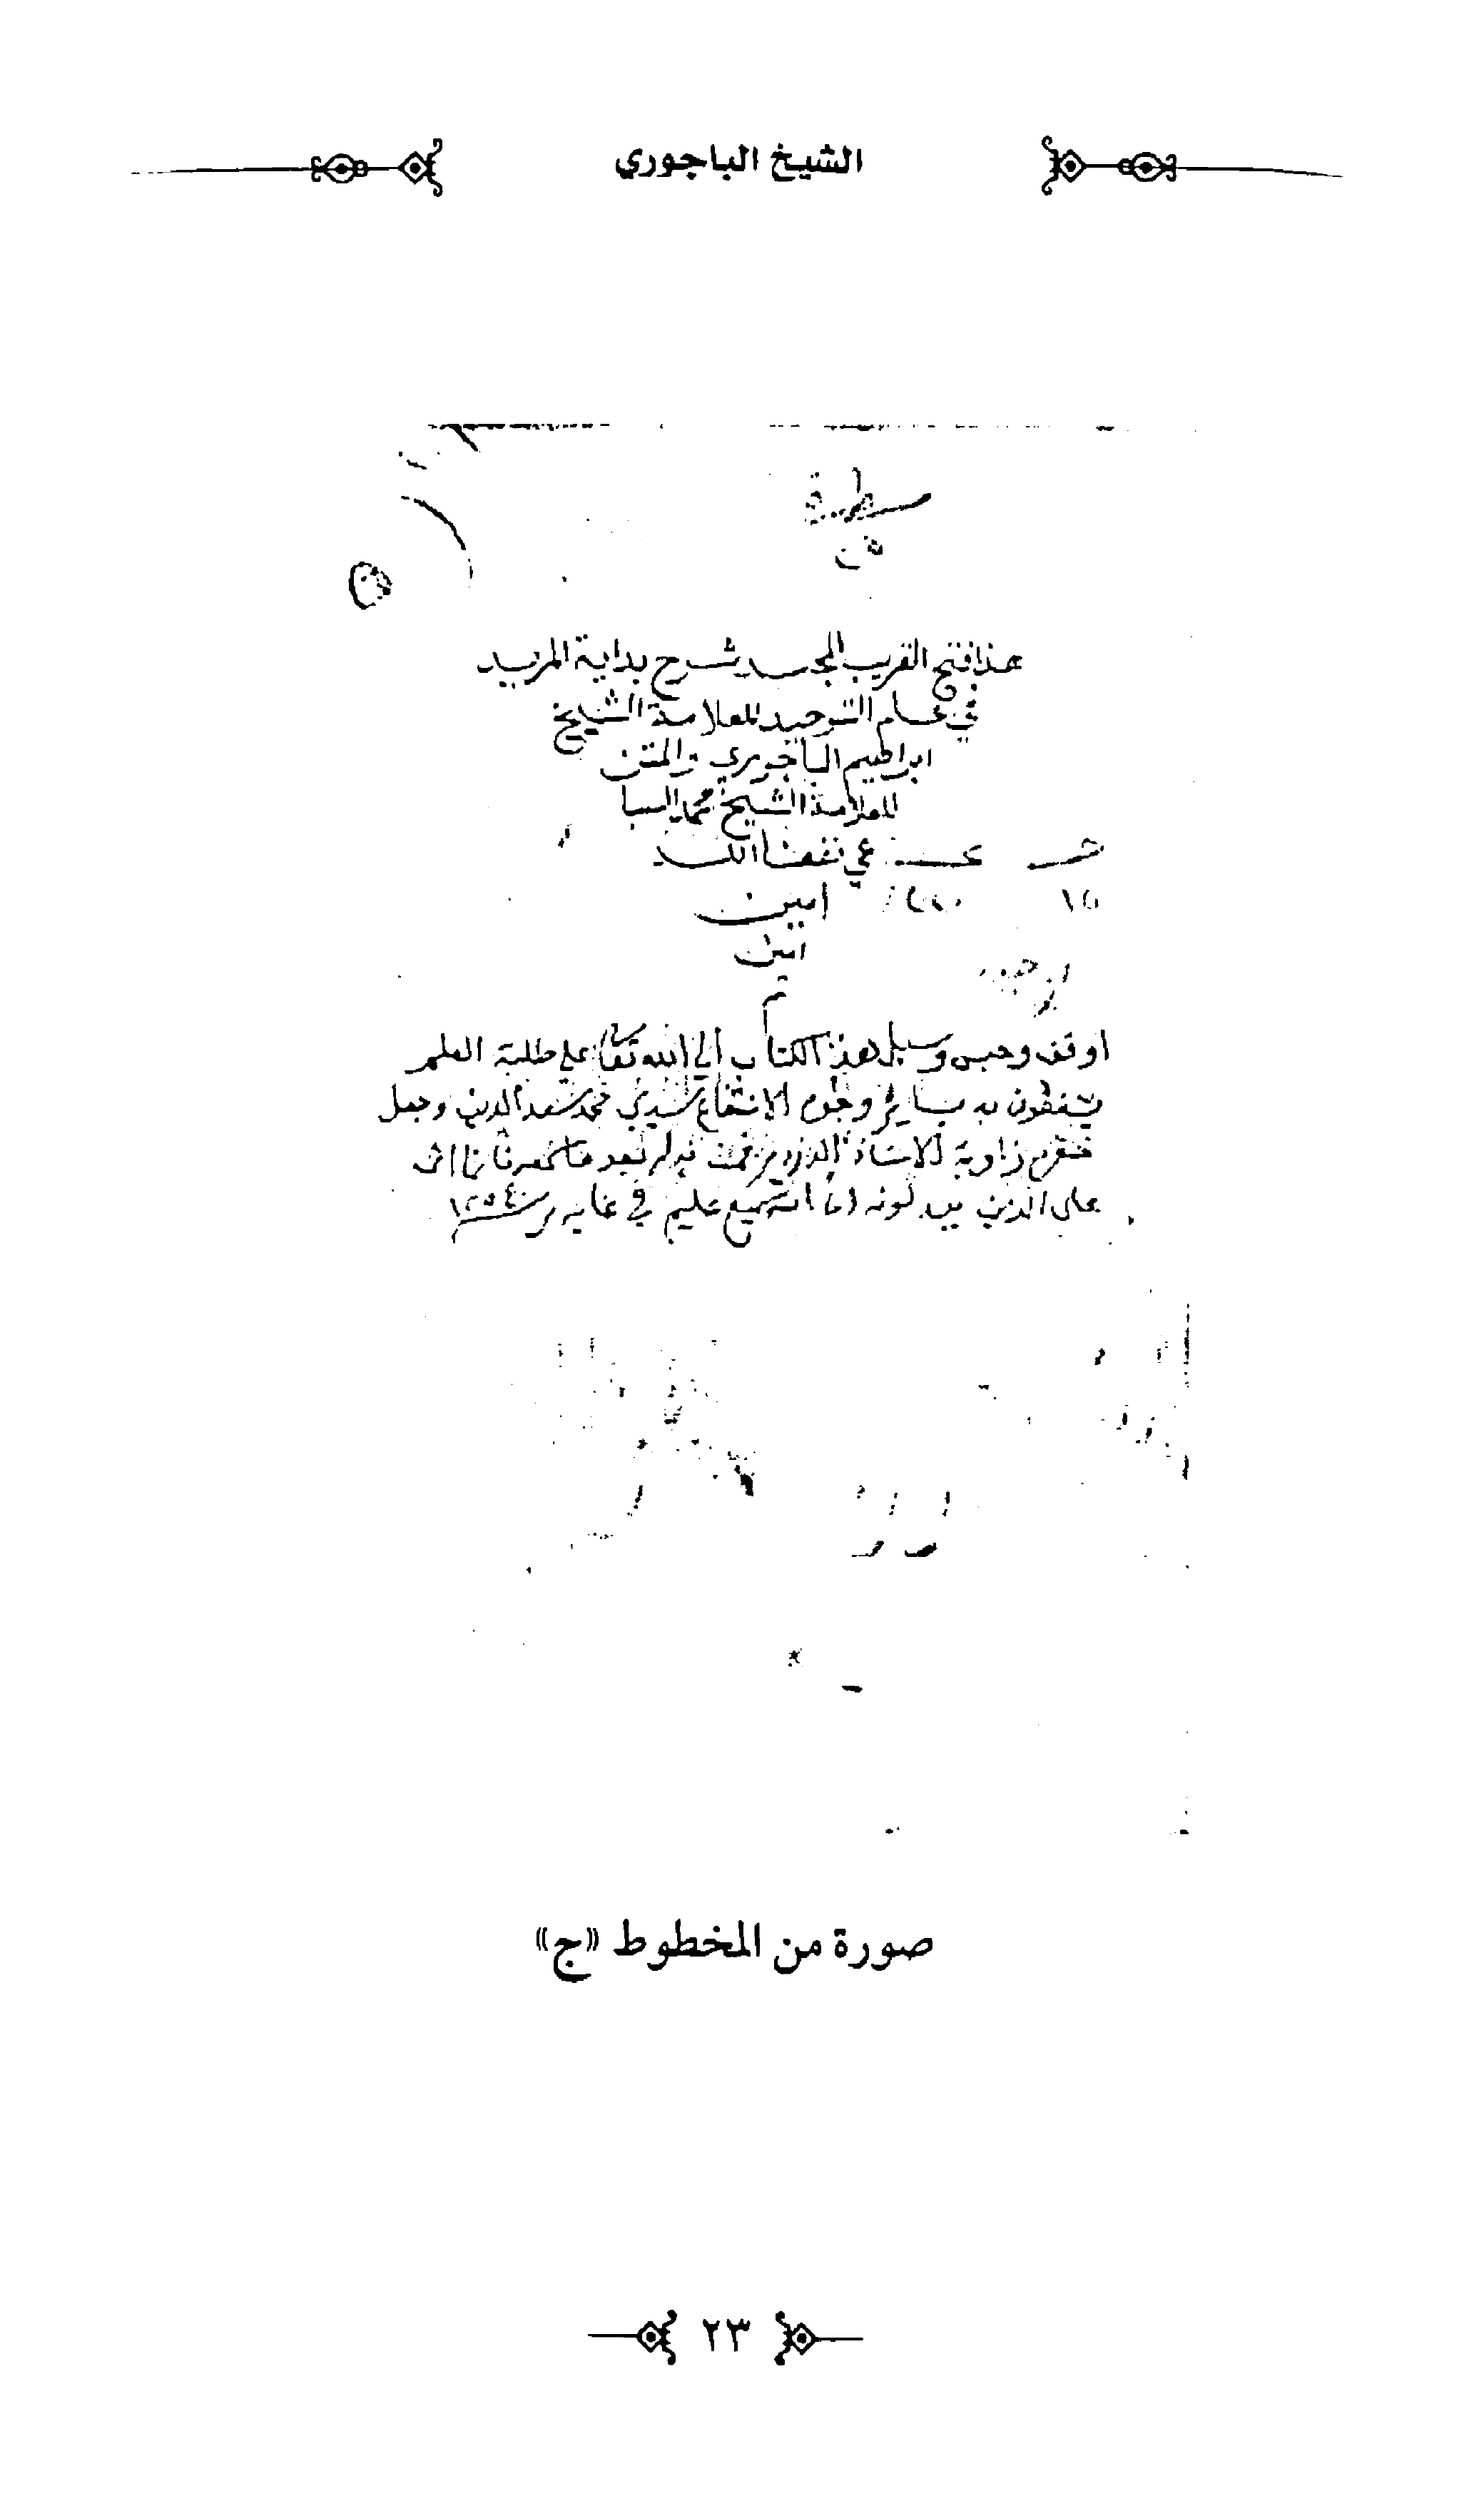 الشيخ الباجوري
مسطرة
هذا فتح القريب المجيد شرح بداية المريد
في علم التوحيد للعلامة الشيخ
ابراهيم الباجوري والمتن
للعلامة الشيخ محمد السبا
عي نفعنا الله
امين
امين
اوقف وحبس وسبل هذا الكتاب الي الله تعالى على طلبة العلم
ينتفعون به بساير وجوه الانتفاع سيدي محمد سعد الدين وجعل
مقره زاوية الاستاذ الدردير فمن بدله بعد ما سمعه فانما اثمه
على الذين يبدلونه ان الله سميع عليم في غاية ر سنة ١٢٥٤
صورة من المخطوط «ج»
٢٣